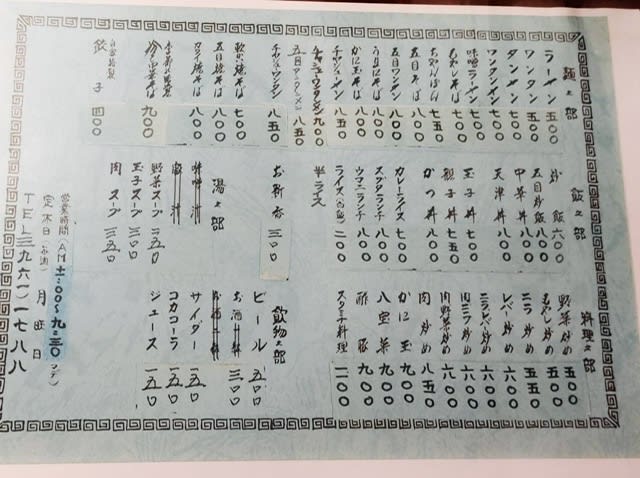 麺之部
ラーメン 五〇〇
ワンタン 五〇〇
タンメン 七〇〇
ワンタンメン 七〇〇
味噌ラーメン 七〇〇
もやしそば 七〇〇
ちゃんぽん 七五〇
五目そば 八〇〇
五目ワンタン 八〇〇
うま煮そば 八〇〇
かに玉そば 八〇〇
チャーシューメン 八五〇
チャーシューワンタンメン 九〇〇
五目ワンタンメン 八五〇
チャーシューワンタン 八五〇
軟い焼そば 七〇〇
五目焼そば 八〇〇
カタ焼そば 八〇〇
冷し中華そば 九〇〇
自家特製
餃子 四〇〇
飯之部
炒飯 六〇〇
五目炒飯 八〇〇
中華丼 八〇〇
天津丼 八〇〇
玉子丼 七〇〇
親子丼 七五〇
かつ丼 八〇〇
カレーライス 七〇〇
スブタランチ 八〇〇
ウマニランチ 八〇〇
ライス 二〇〇
半ライス
お新香 三〇〇
湯之部
味噌汁
野菜スープ 二五〇
玉子スープ 三五〇
肉スープ 三五〇
料理之部
野菜炒め 五〇〇
もやし炒め 五〇〇
ニラ炒め 五五〇
レバ炒め 六〇〇
ニラレバ炒め 六〇〇
肉ニラ炒め 六〇〇
肉野菜炒め 六〇〇
肉炒め 八五〇
かに玉 九〇〇
八宝菜 九〇〇
酢豚 九〇〇
スタミナ料理 一一〇〇
飲物之部
ビール 五〇〇
お酒一杯 三〇〇
サイダー 一五〇
コカコーラ 一五〇
ジュース 一五〇
営業時間(AM十一:〇〇〜九:三〇マデ)
定休日 月曜日
TEL三九六一)一七八八